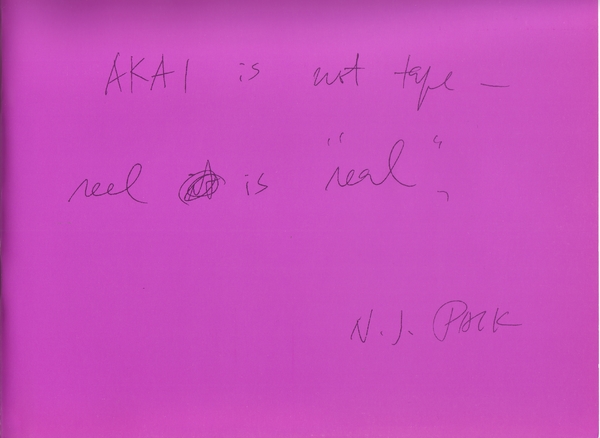 AKAI is not tape —
reel is "real".
N. J. PAIK